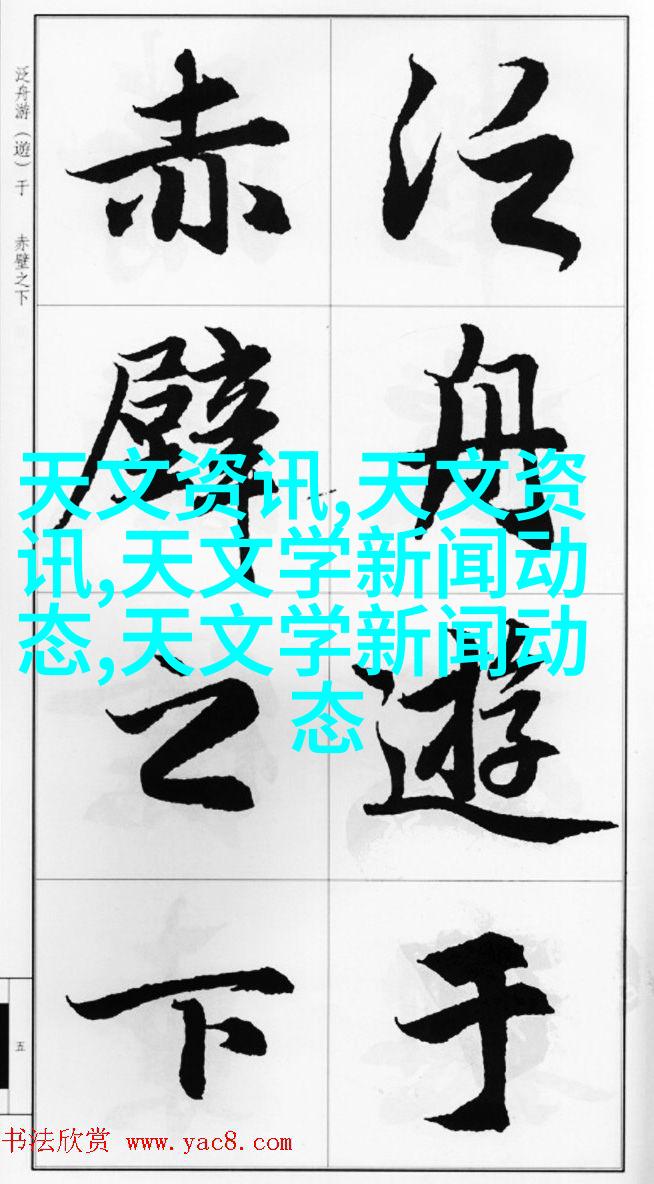 泛舟遊于
赤壁之下
泛舟游（遊）于　赤壁之下
天文资讯,天文资
讯,天文学新闻动
态,天文学新闻动
态
五
书法欣赏 www.yac8.com